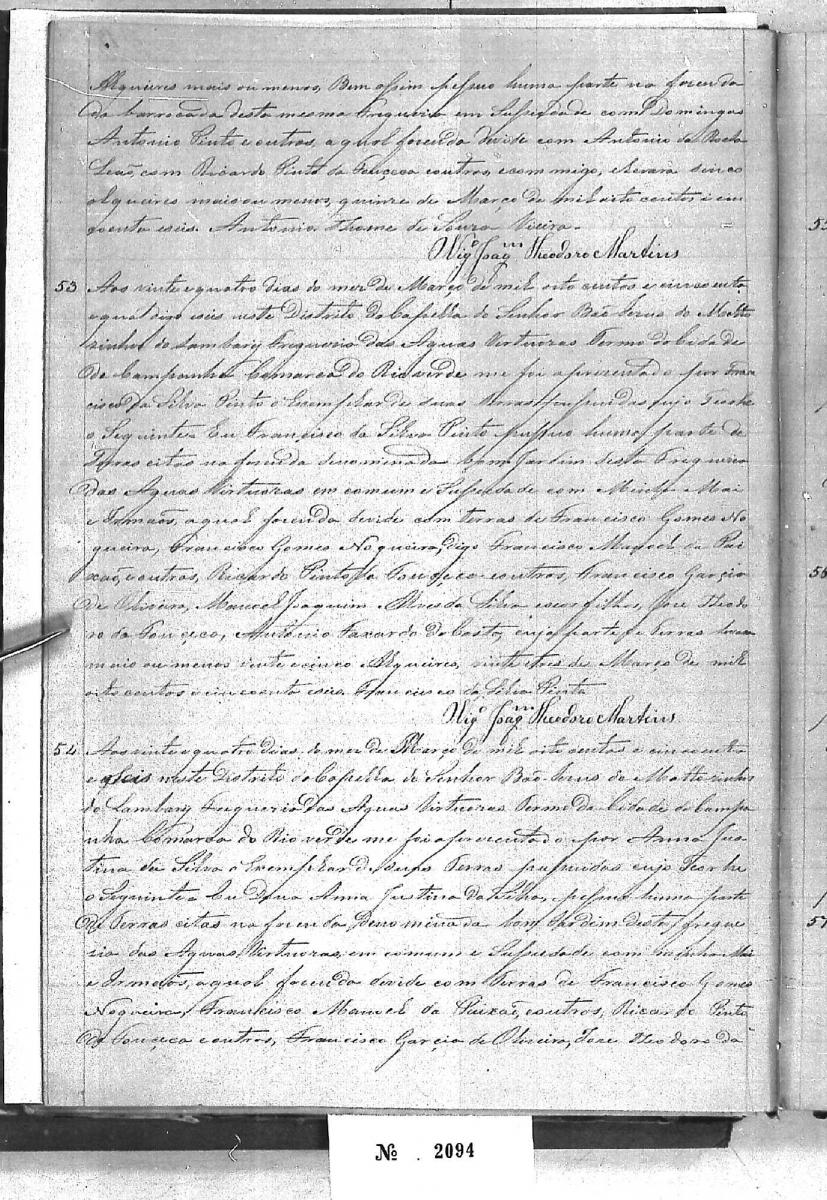 Alqueires mais ou menos, Bem assim pessuo huma parte na fazenda
da barrocada desta mesma Freguezia em Suciedade com Domingos
Antonio Pinto e outros, a qual fazenda devide com Antonio da Rocha
Leaõ, com Ricardo Pinto da Fonçeca eoutros, ecommigo, elevara sinco
alqueires maisou menos, quinze de Março de mil oito centos e cin
coenta eseis. Antonio Thome de Souza Vieira.
Vigº Joaqᵐ Theodoro Martins
53 Aos vinte equatro dias do mez de Março de mil oito centos e cincoenta
eseis neste Distrito da Capella do Senhor Bão Jezus do Matto
zinhos do Lambary Freguezia das Aguas Virtuozas Termo da Cidade
de Campanha Comarca do Rio verde me foi aprezentado por Fran
cisco da Silva Pinto o Exemplar de suas terras pessuidas cujo Teor he
o Seguinte Eu Francisco da Silva Pinto pessuo huma parte de
Terras citas na fazenda denominada Bom Jardim desta Freguezia
das Aguas Virtuozas em comum e Suciedade com Minha Mai
e Irmaõs, a qual fazenda devide com terras de Francisco Gomes No
gueira, Francisco Gomes Nogueira, digo Francisco Manoel da Pai
xaõ, eoutros, Ricardo Pinto da Fonçeca eoutros, Francisco Garcia
de Oliveira, Manoel Joaquim Alves da Silva eseus filhos, Joze Theodo
ro da Fonçeca, Antonio Faxardo da Costa, cuja parte de Terras levara
mais ou menos vinte e cinco Alqueires, vinte etres de Março de mil
oito centos e cincoenta eseis. Francisco da Silva Pinto
Vigº Joaqᵐ Theodoro Martins
54 Aos vinte equatro dias do mez de Março de mil oito centos e cincoenta
e seis neste Distrito da Capella do Senhor Bão Jezus do Mattozinhos
do Lambary Freguezia das Aguas Virtuozas Termo da Cidade da Campa
nha Comarca do Rio verde me foi aprezentado por Anna Jus
tina da Silva o Exemplar de suas Terras pessuidas cujo Teor he
o Seguinte Eu Dona Anna Justina da Silva, pessuo huma parte
de Terras citas na fazenda Denominada bom Jardim desta fregue
zia das Aguas Virtuozas, em comum e Suciedade com minha Mai
e Irmaõs, a qual fazenda devide com Terras de Francisco Gomes
Nogueira, Francisco Manoel da Paixaõ, eoutros, Ricardo Pinto
da Fonçeca e outros, Francisco Garcia de Oliveira, Joze Theodoro da
55
56
57
Nº 2094